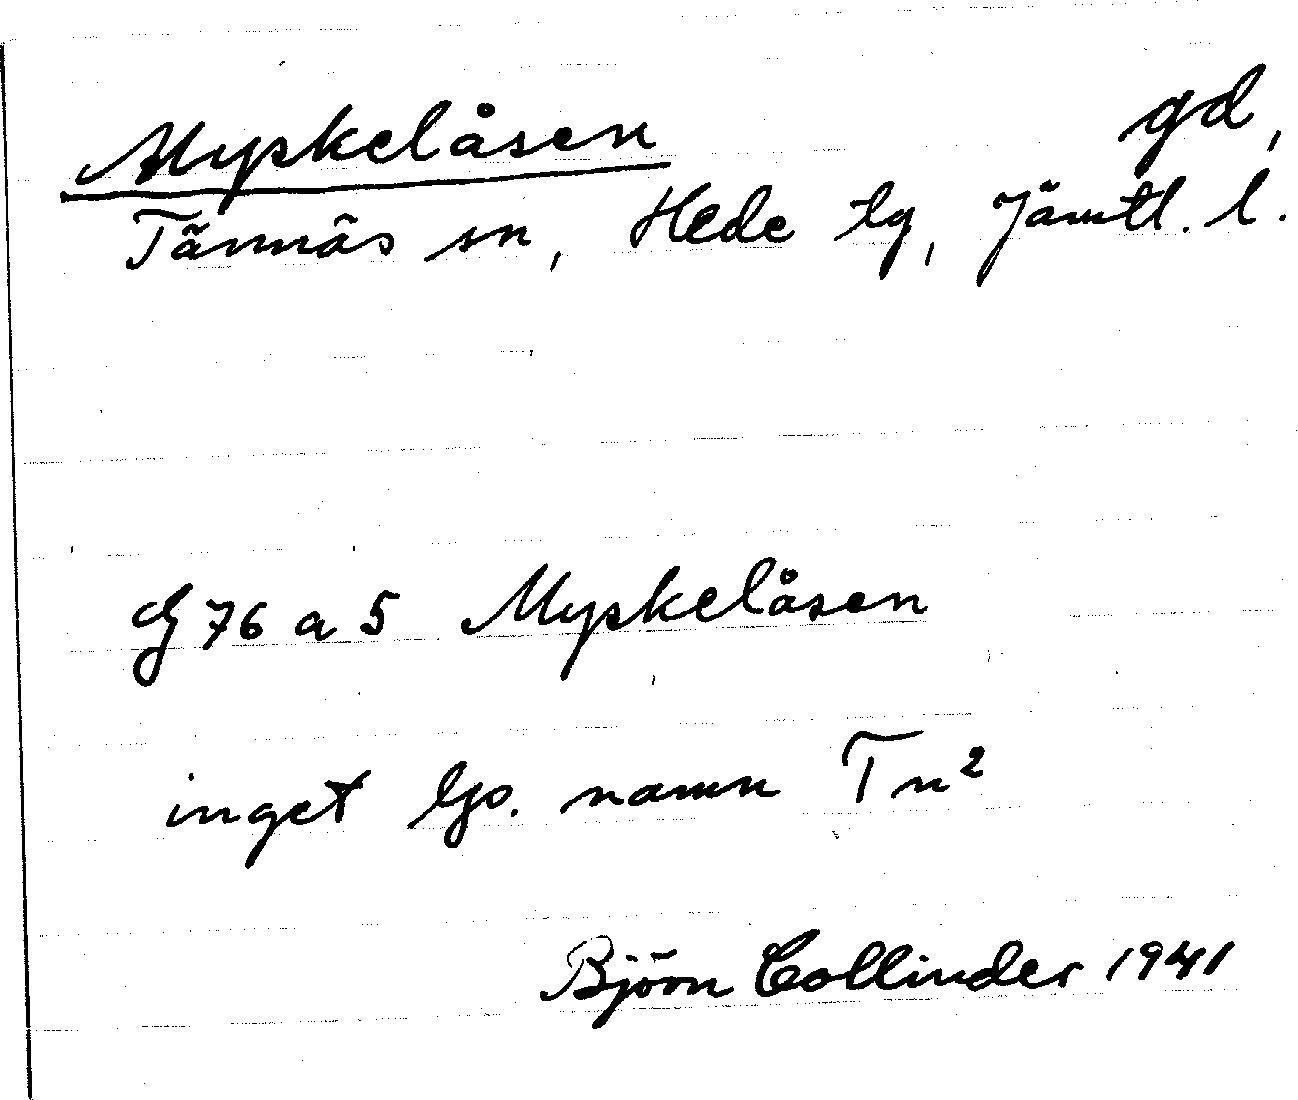 Myskelåsen gd,
Tännäs sn, Hede tg, Jämtl. l.
G 76 a 5 Myskelåsen
inget lp. namn Tn²
Björn Collinder 1941